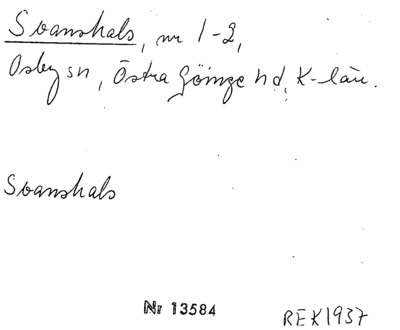 Svanshals, nr 1-2,
Osby sn, Östra Göinge hd, K-län.
Svanshals
Nr 13584
REK1937